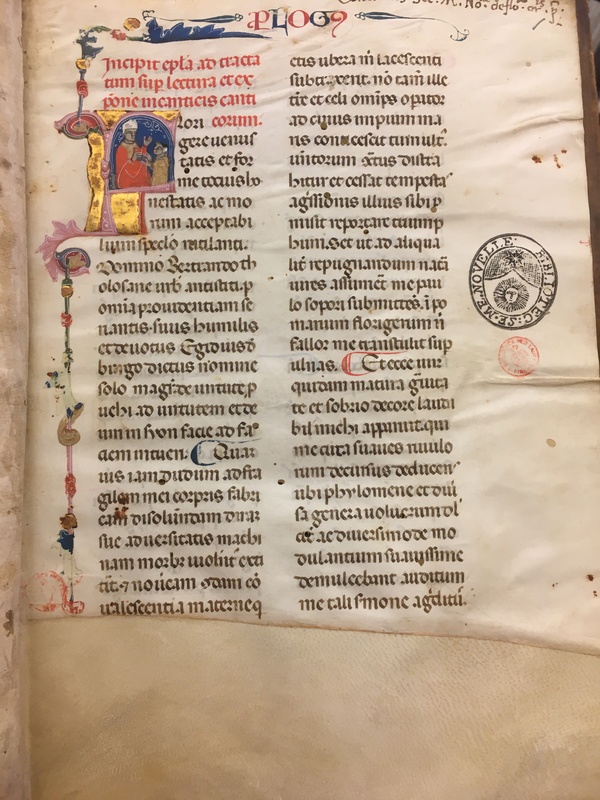 PLOG9
Incipit epla ad tracta
tum sup lectura et ex
pone in canticis canti
Flori corum.
gere uenus
tatis et for
me totius ho
nestatis ac mo
rum acceptabi
lium speclo rutilanti.
Domino Bertrando th
olosane urb antistiti. p
omia prouidentiam se
nantis. suus humilis
et deuotus Egidius d
burgo dictus nomine
solo magr. de uirtute p
uehi ad uirtutem et de
um in syon facie ad fa
ciem intueri. Quar
tus iam dudum ad fra
gilem mei corpris fabri
cam disoluendam durar
sue aduersitatis machi
nam morbr uoluit exti
tit. 7 noueam etiam co
ualescentia materneq
ctis ubera mi lacescenti
subtraxerit. no tam ille
tre et celi omips opator
ad cuius impium ma
ris conquescit tumult.
uentorum distra
hitur et cessat tempesta
agssimis illius sibi p
misit reportare triump
hum. Set ut ad aliqua
lit repugnandum nacti
uires assumet me pau
lo sopori submittes. i po
manum florigerum ni
fallor me transtulit sup
ulnas. Et ecce uir
quidam matura guita
te et sobrio decore laudi
bil michi apparuit. qui
me iuxta suaues riuulo
rum decursus deducen
ubi phylomene et diu
sa genera uolucrum dl
cit ac diuersimode mo
dulantium suauissime
demulcebant auditum
me tali smone agditu.
BIBLIOTEC. S. E. M. E. NOVELLE.